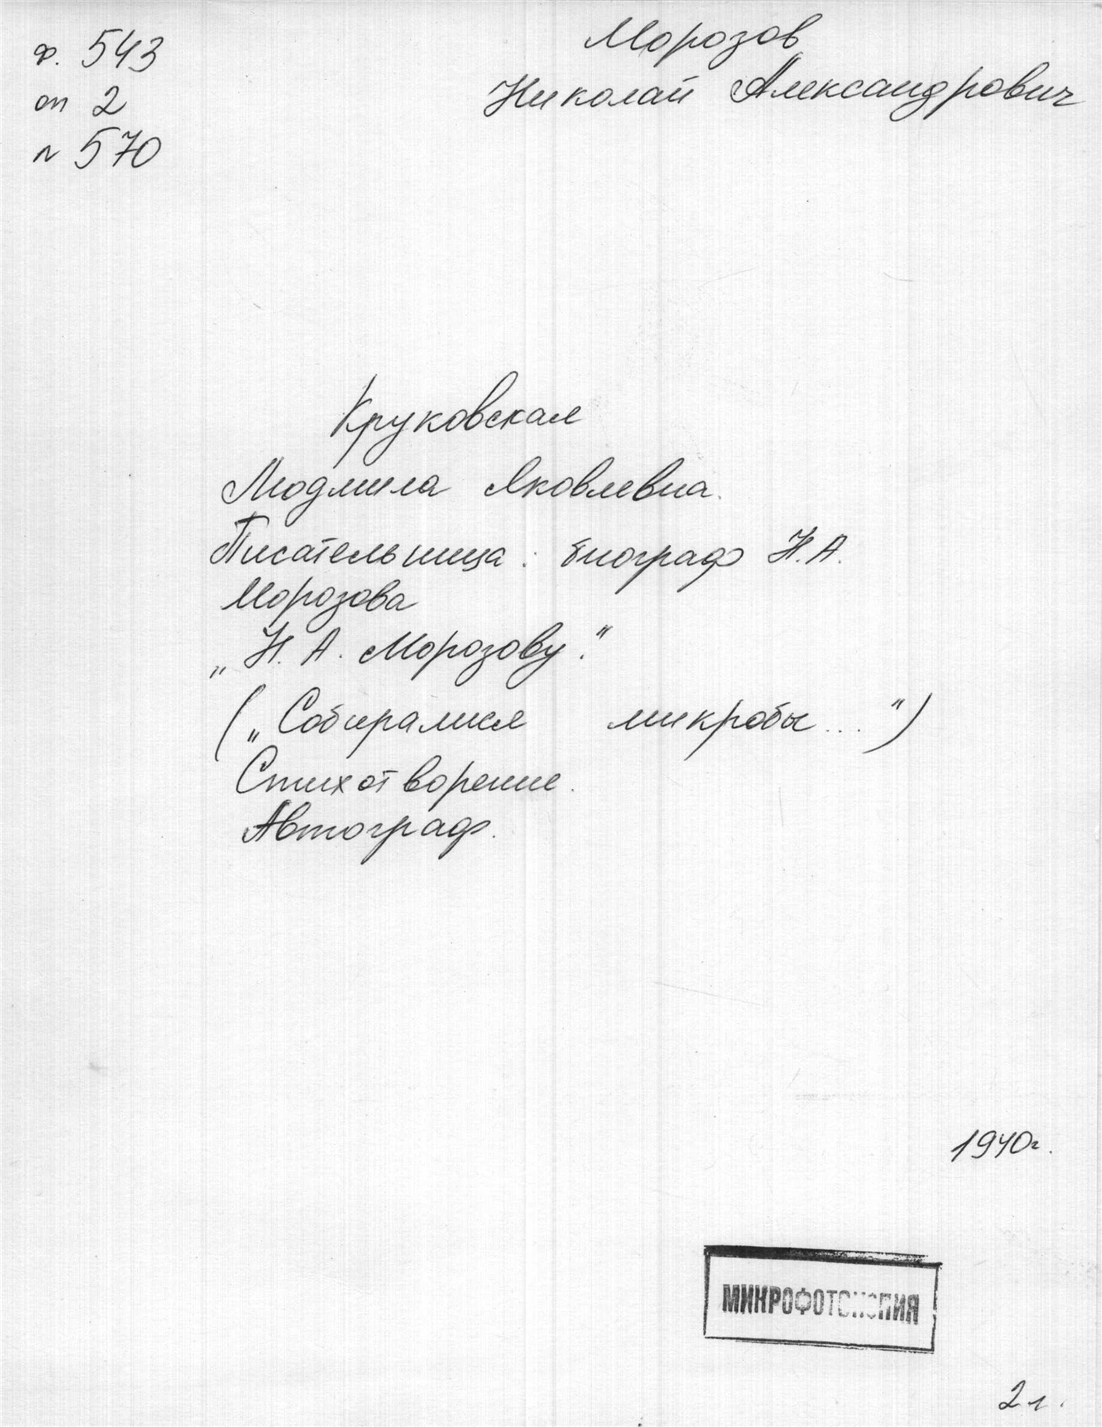 ф. 543
оп 2
№ 570
Морозов
Николай Александрович
Круковская
Людмила Яковлевна.
Писательница: биограф Н.А.
Морозова
„Н. А. Морозову."
(„Собирались микробы...")
Стихотворение.
Автограф.
1940г.
МИКРОФОТОКОПИЯ
2 л.